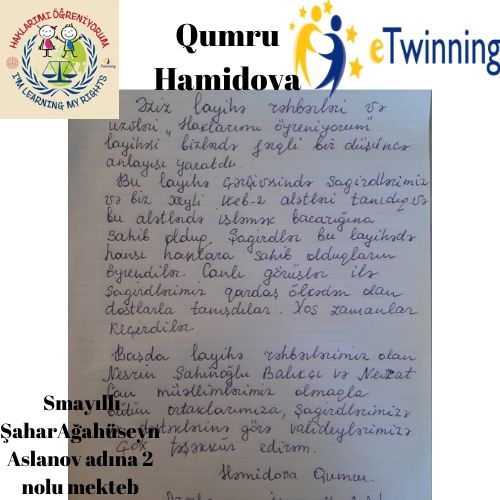 HAKLARIMI ÖĞRENİYORUM
I'M LEARNING MY RIGHTS
Twinning
Qumru
Hamidova
eTwinning
Əziz layihə rəhbərləri və
üzvləri "Haklarımı öyreniyorum"
layihəsi bizlərdə fərqli bir düşüncə
anlayışı yaratdı.
Bu layihə çərçivəsində Şagirdlərimiz
və biz xeyli Veb-2 alətləri tanıdıq və
bu alətlərdə işləmək bacarığına
sahib olduq. Şagirdlər bu layihədə
hansı haqlara sahib olduqların
öyrəndilər. Canlı görüşlər ilə
Şagirdlərimiz qardaş ölkədən olan
dostlarla tanışdılar. Xoş zamanlar
keçirdilər
Başda layihə rəhbərlərimiz olan
Nesrin Şahinoğlu Balıkçı və
müəllimlərimiz olmaqla
bütün ortaqlarımıza, Şagirdlərimizə
dəstəklərinə görə valideylərimizə
Çox təşəkkür edirəm.
Həmidova Qumru.
Smayıllı
ŞaharAğahüseyn
Aslanov adına 2
nolu mekteb